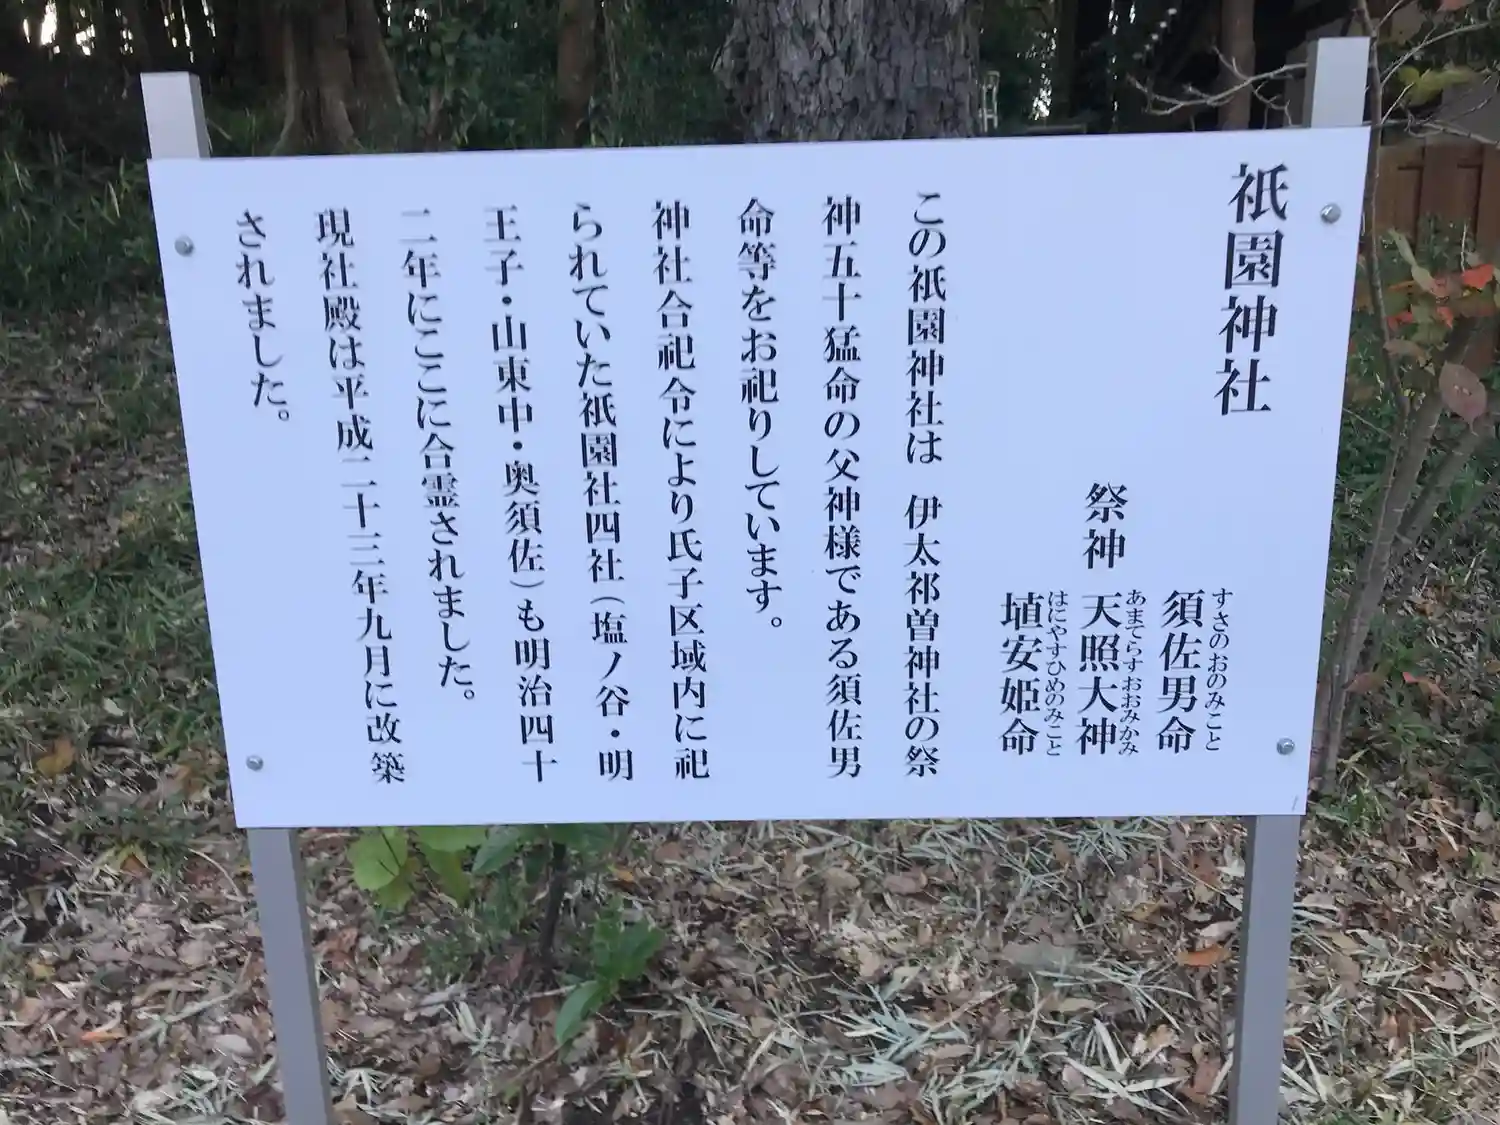 祇園神社
祭神
すさのおのみこと
須佐男命
あまてらすおおみかみ
天照大神
はにやすひめのみこと
埴安姫命
この祇園神社は 伊太祁曽神社の祭
神五十猛命の父神様である須佐男
命等をお祀りしています。
神社合祀令により氏子区域内に祀
られていた祇園社四社（塩ノ谷・明
王子・山東中・奥須佐）も明治四十
二年にここに合霊されました。
現社殿は平成二十三年九月に改築
されました。